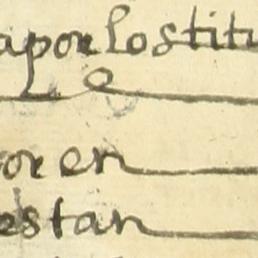 apor los titu
or en
estan